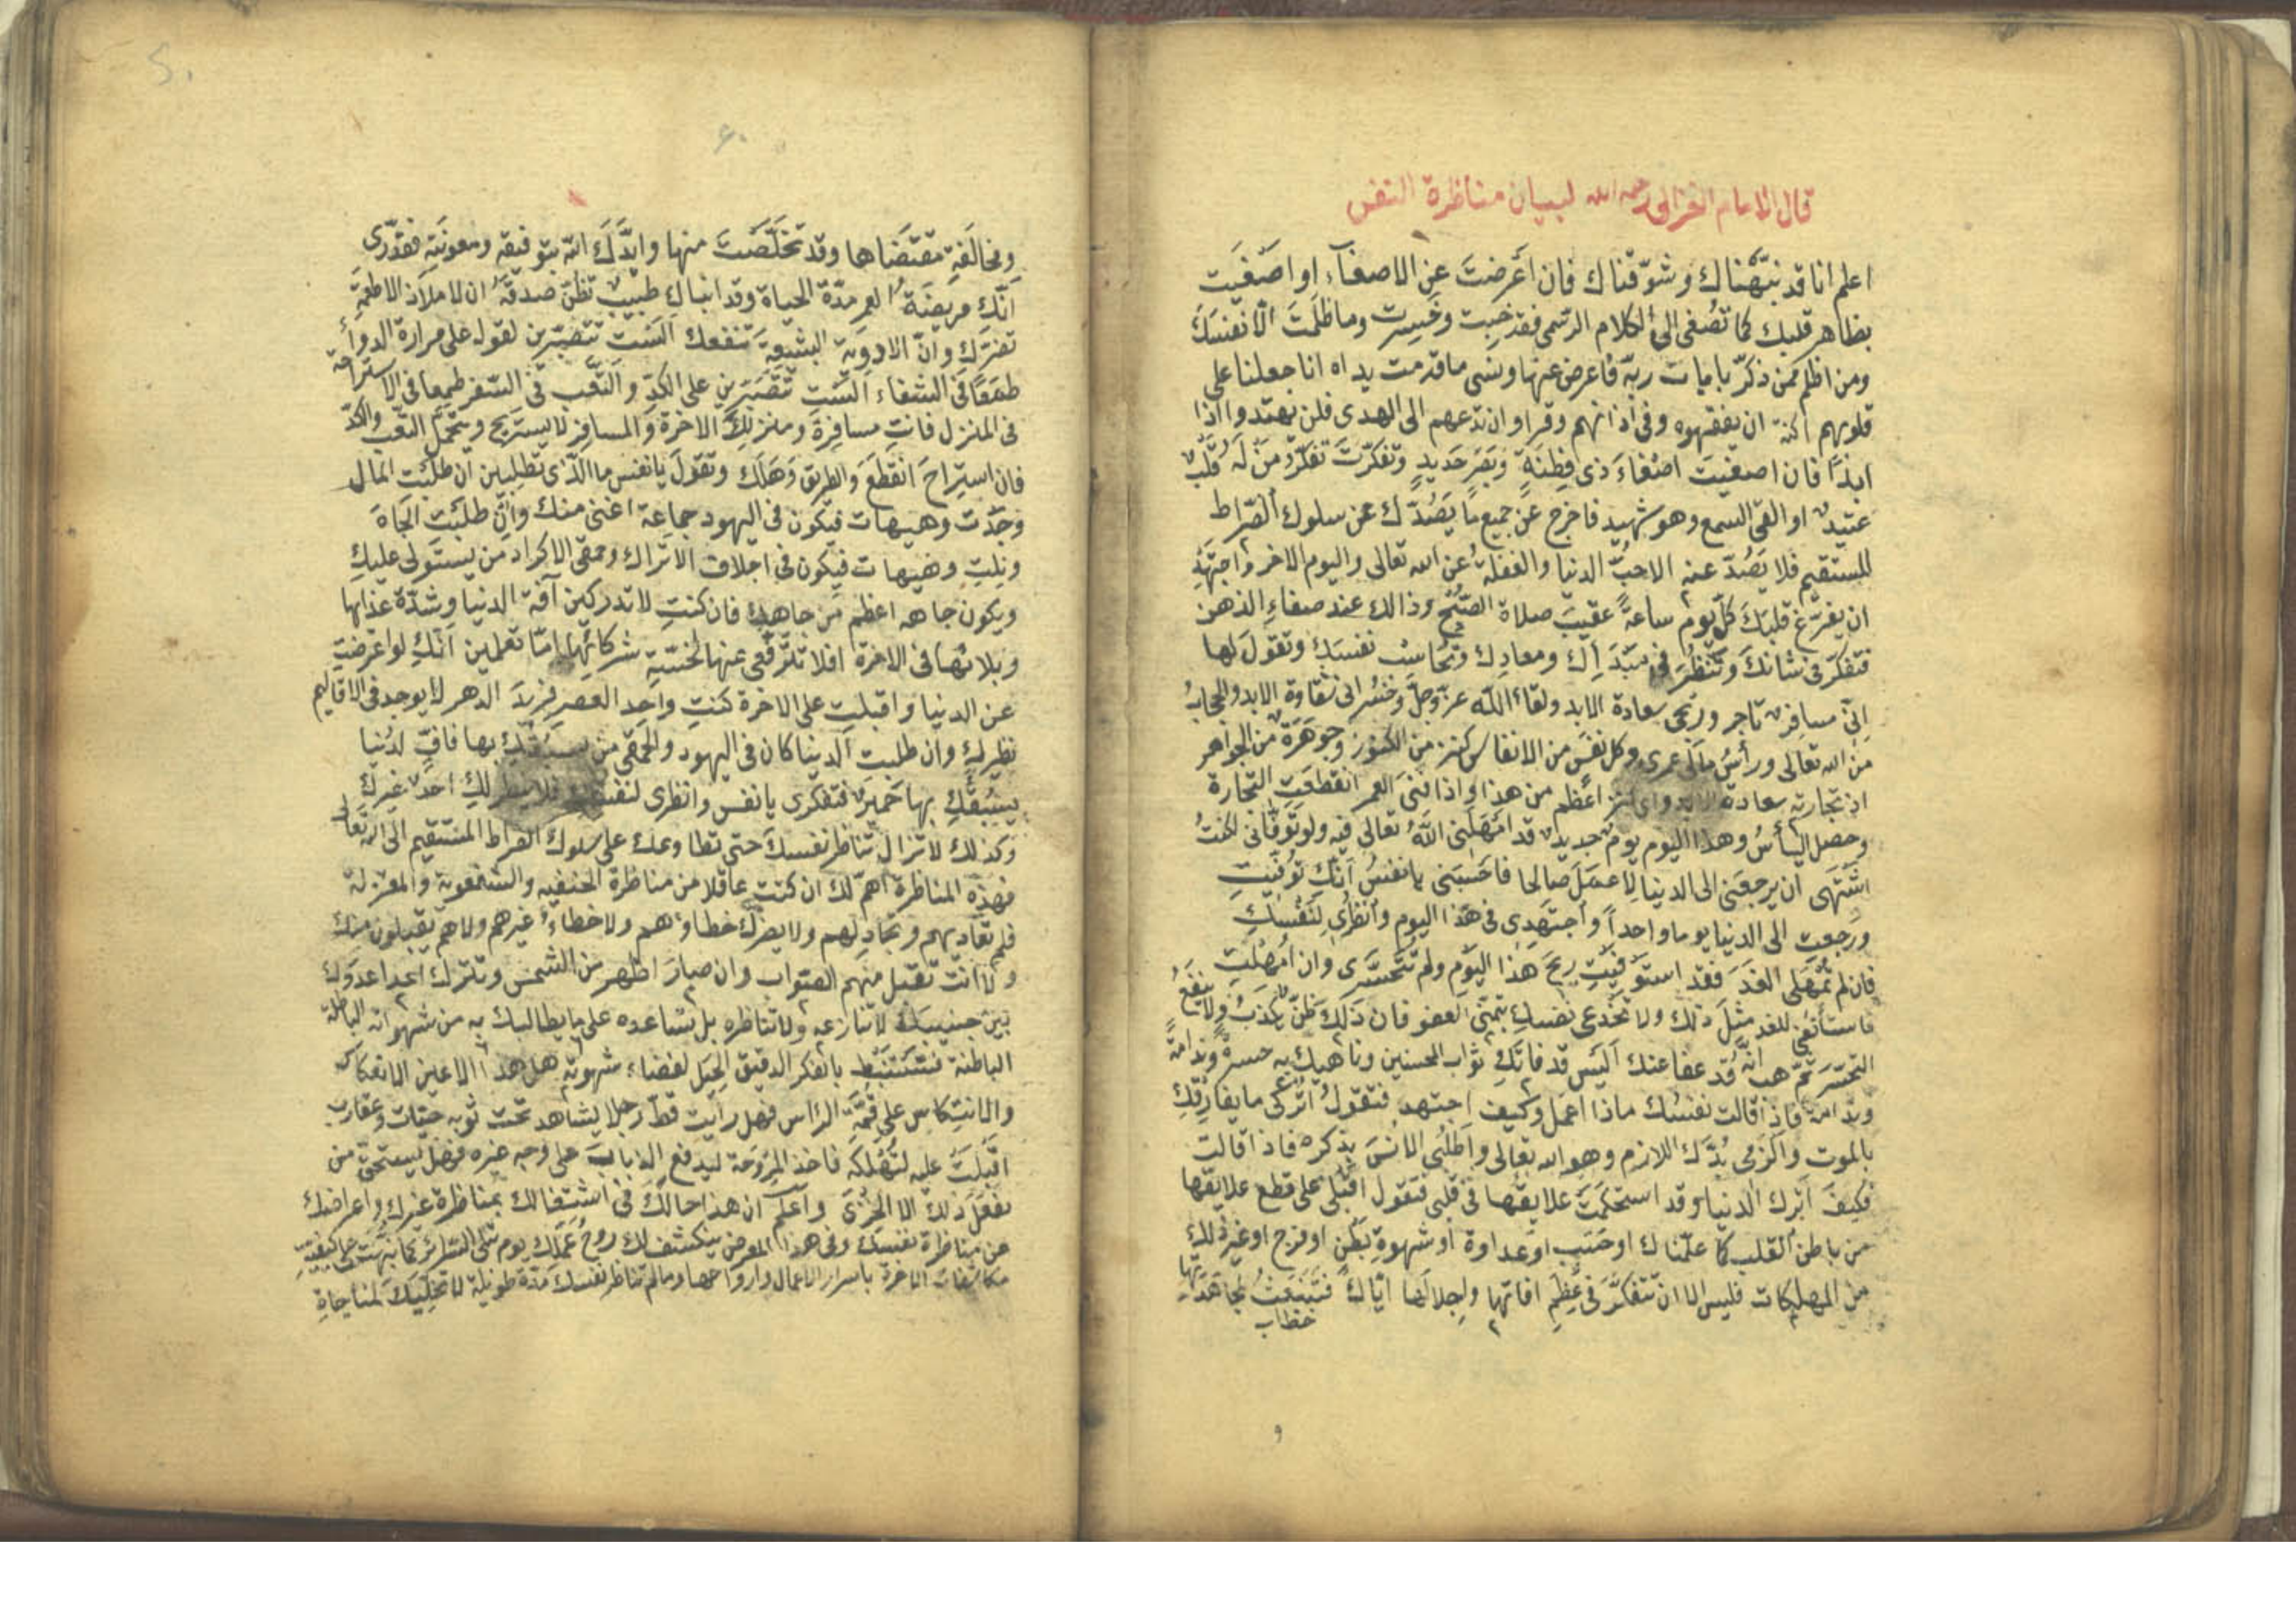 قال الامام الغزالى رحمه الله لبيان مناظرة النفس
اعلم انا قد نبّهناك وشوّقناك فان أعرضتَ عن الاصغآء او اصْغَيت
بظاهر قلبك كما تصُغى الى الكلام الرسمى فقد خِبت وخَسِرت وما ظلَمتَ الّا نفسَكَ
ومن اظلم ممن ذكّر بايات ربّه فاعرض عنها ونسى ما قدمت يداه انا جعلنا على
قلوبهم اكنة ان يفقهوه وفى اذانهم وقرا وان تدعهم الى الهدى فلن يهتدوا اذا
ابدًا فان اصغيتَ اصْغاءَ ذى فِطنَةٍ وبَصَرٍ حَديدٍ وتفكرّتَ تفكّرَ مَنْ لَهُ قَلْبٌ
عتيدٌ او القى السمع وهو شهيد فاخرج عن جميع ما يَصُدّك عن سلوك الصّراط
المستقيم فلا يَصُدّ عنه الا حبّ الدنيا والغفلةُ عن الله تعالى واليوم الاخر واجتَهِدْ
ان يفرّغ قلبَكَ كلّ يوم ساعةً عقيبَ صلاة الصّبح وذالك عند صفاءِ الذهن
فتفكرّ فى شانكَ وتَنظُرَ فى مبْدَاِك ومعادِك وتُحاسبُ نفسَكَ وتقولَ لها
اِنّى مسافرٌ تاجر ورِبحى سعادة الابد ولقاءُ اللّه عزّ وجلّ وخُسْرانى شقاوة الابد والحجابُ
من الله تعالى ورأسُ مالى عمرى وكل نفَسٍ من الانفاس كنز من الكنوز وجوهَرَةٌ من الجواهر
اذ تجارته سعادة الابد واى كنز اعظم من هذا واذا فنىَ العمر انقطعَتِ التجارة
وحصل اليأسُ وهذا اليوم يومٌ جديدٌ قد امْهلَنِى اللّهُ تعالى فيه ولو توَفّانى لكنتُ
اشْتَهى ان يرجعَنى الى الدنيا لاعمَلَ صالحا فاحْسَبَنى يا نفسُ اَنّك توُفّيتِ
ورَجعتِ الى الدنيا يوما واحداً واجتهَدِى فى هَذا اليوم وانظُرِى لِنَفْسِكِ
فان لم تُمْهَلى الغدَ فقد استَوْفيْتِ رِبحَ هَذا اليَوم ولم تتحَسّرى وان اُمهِلْتِ
فاستَأنفى للغد مثلَ ذلك ولا تخدَعى نفسَكِ بتمنّى العفو فان ذَلكَ ظنّ يكذبُ ولا ينفعُ
التحسّر ثمّ هب انّه قد عفا عنك اَليْسَ قد فاتَكِ ثواب المحسنين وناهيك به حسرةً وندامةً
وندامة فاذا قالت نفسُك ماذا اعمل وكيف اجتهد فتقولُ اترُكى ما يفارقكِ
بالموت والزمى بُدّك اللازم وهو الله تعالى واطلبُى الانُسَ بذكره فاذا قالت
فكيفَ اَترك الدنيا وقد استحكمَتْ علايقها فى قلبى فتقول اقبلى على قطع علايقها
من باطن القلب كما علّمناك او حَسَب او عَداوة او شهوةِ بَطْنٍ او فرج او غير ذلك
من المهلكات فليس الا ان تتفكّرَ فى عِظَمِ افاتها ولجِلالها ايّاكَ فَتَنْبَعِثُ لمجاهَدتها
خطاب
ومخالَفةِ مقتضَاها وقد تخلّصَتَ منها وايّدَكَ الله بتوفيقه ومعونَتِه فقدّرى
اَنّكِ مريضَةُ العمر مدّةَ الحياة وقد انباكِ طبيبٌ تظنّ صدقَهُ ان لا ملاذ الاطعمَة
تضرّك وانّ الادويَة البشِعَةِ تنفعك اَلسْتِ تتصَبّرين لقوله على مرارة الدواء
طمَعًا فى الشفاء اَلسْتِ تتَصَبّرين على الكدّ والتّعب فى السّفر طمِعا فى الاستراحة
فى المنزل فانتِ مسافِرةٌ ومنزلكِ الاخرة والمسافر لا يستريح ويتحمّل التعب والكدّ
فان استِراحَ انقطَعَ والطريق وهَلَكَ وتقولَ يا نفس ما الذّى تطلبين ان طلبْتِ المال
وجدْت وهيهات فيكون فى اليهود جماعة اغنى منك وانّ طلبتِ الجَاهَ
ونِلتِ وهيهات فيكون فى اجلاف الاتراك وحمقى الاكراد من يستولى عليكِ
ويكون جاهه اعظم من جاهك فان كنتِ لا تدركين آفة الدنيا وشدّة عذابها
وبلائها فى الاخرة افلا تترَفّعى عنها لخسّة شركائها اما تعلمين اَنّكِ لو اعرضتِ
عن الدنيا واقبلتِ على الاخرة كنتِ واحدَ العصر فريدَ الدهر لا يوجد فى الاقاليم
نظيرك وان طلبت الدينا كان فى اليهود والحمقى من يسبقُكِ بها فافٍّ لدُنيا
يسْبُقُكِ بها حَميرٌ فتفكرى يا نفس وانظرى لنفسك فلا ينظر لكِ احدٌ غيركِ
وكذلك لا تزال تناظر نفسكَ حتى تطاوعك على سلوك الصراط المستقيم الى الله تعالى
فهذه المناظرة اهمّ لك ان كنت عاقلا من مناظرة الحنفيه والشفعوية والمعتزلة
فلم تعّاديهم وتجادلهم ولا يضرّك خطاؤهم ولا خطاءُ غيرهم ولا هم يقبلون منك
ولا انت تقبل منهم الصّواب وان صار اظهر من الشمس وتترك اعدا عدوّك
بين جنبيك لا تنازعه ولا تناظره بل تساعده على ما يطالبك به من شهواته الباطلة
الباطنة فتستنبط بالفكر الدقيق الحِيَل لقضاء شهوته هل هذا الا عين الانعكاك
والانتِكاس على قمّة الرأس فهل رايت قطّ رجلا يشاهد تحت ثوبه حيّات وعقارب
اقبلَتْ عليه لتُهْلِكَه فاخذ المِروَحة ليدفع الذباب على وجه غيره فهل يستحقّ من
يفعل ذلك الا الخِزْىَ واعلم ان هذا حالكَ فى اشتغالك بمناظرة غيرك واعراضك
عن مناظرة نفسك وفى هذا المعرض ينكشف لك روحُ عَمَلك يوم تبلى السّرائر كما نبّهت على كيفية
مكاشفات الاخرة باسرار الاعمال وارواحها وما لم تناظر نفسك مدّة طويلة لا تخلّيكَ لمناجاةِ